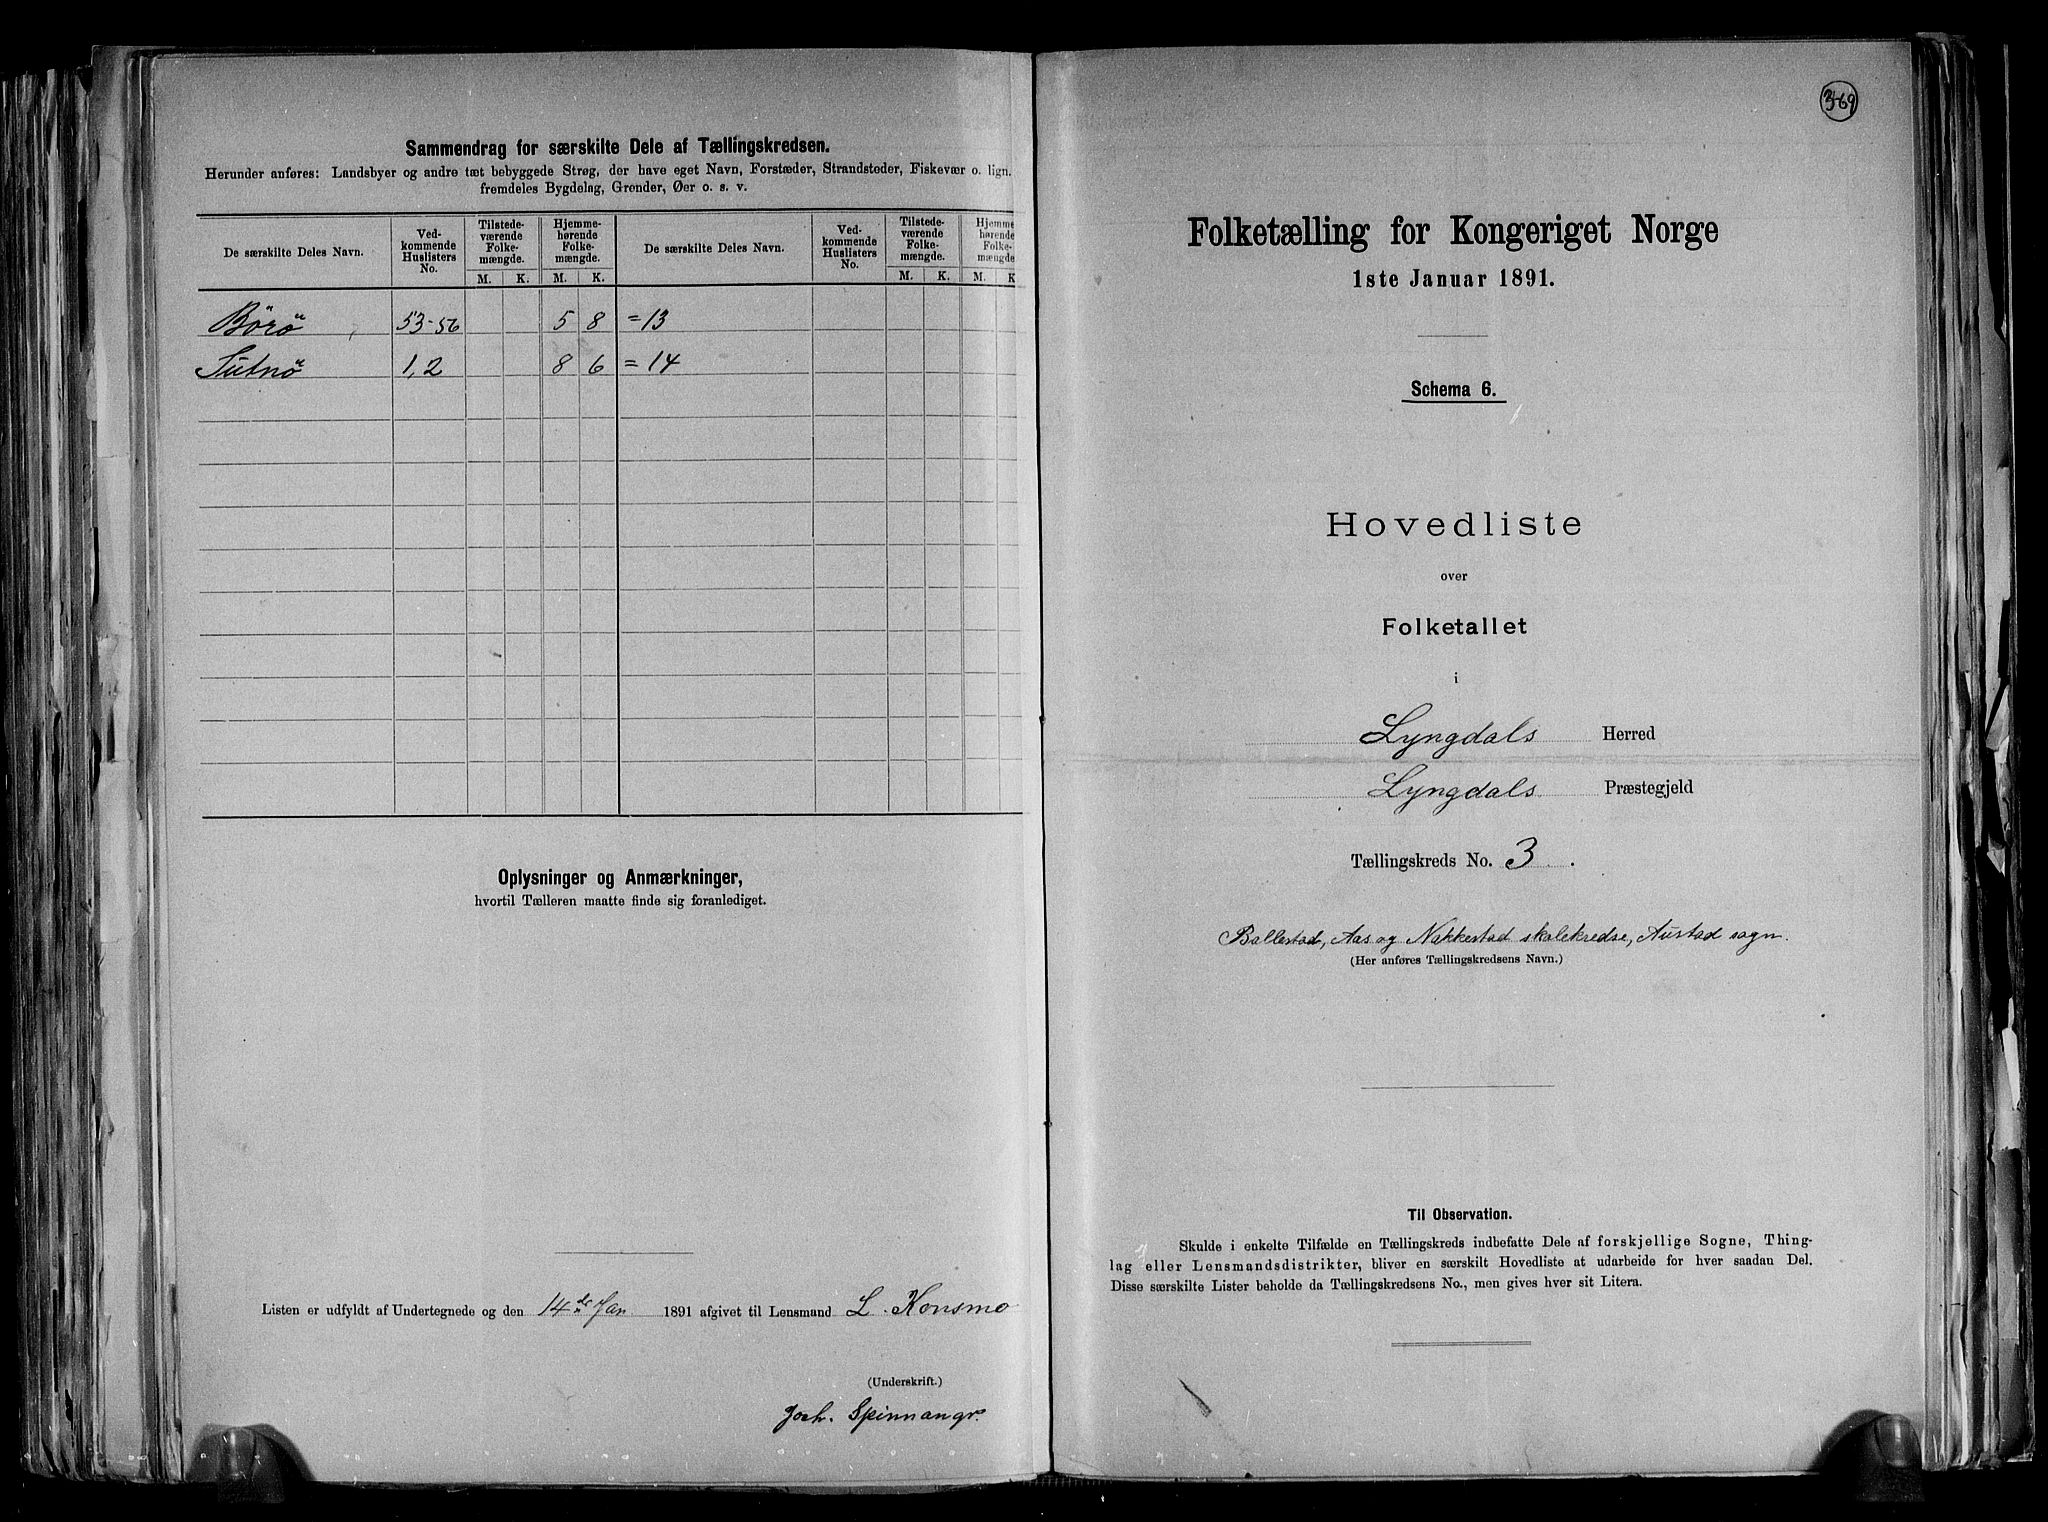 Sammendrag for særskilte Dele af Tællingskredsen.
Herunder anføres: Landsbyer og andre tæt bebyggede Strøg, der have eget Navn, Forstæder, Strandsteder, Fiskevær o. lign.
fremdeles Bygdelag, Grender, Øer o. s. v.
De særskilte Deles Navn. Ved-kommende Huslisters No. Tilstede-værende Folke-mængde. Hjemme-hørende Folke-mængde. De særskilte Deles Navn. Ved-kommende Huslisters No. Tilstede-værende Folke-mængde. Hjemme-hørende Folke-mængde
M. K. M. K. M. K. M. K
Börö 53-56 5 8 =13
1,2 8 6 =14
Oplysninger og Anmærkninger,
hvortil Tælleren maatte finde sig foranlediget.
Listen er udfyldt af Undertegnede og den 14de Jan 1891 afgivet til Lensmand L. Konsmo
(Underskrift.)
Joch. Spinnangr.
369
Folketælling for Kongeriget Norge
1ste Januar 1891.
Schema 6.
Hovedliste
over
Folketallet
i
Lyngdals Herred
Lyngdals Præstegjeld
Tællingskreds No. 3.
Ballestad, Aas og Nakkestad skolekredse, Austad sogn.
(Her anføres Tællingskredsens Navn.)
Til Observation.
Skulde i enkelte Tilfælde en Tællingskreds indbefatte Dele af forskjellige Sogne, Thing-
lag eller Lensmandsdistrikter, bliver en særskilt Hovedliste at udarbeide for hver saadan Del.
Disse særskilte Lister beholde da Tællingskredsens No., men gives hver sit Litera.